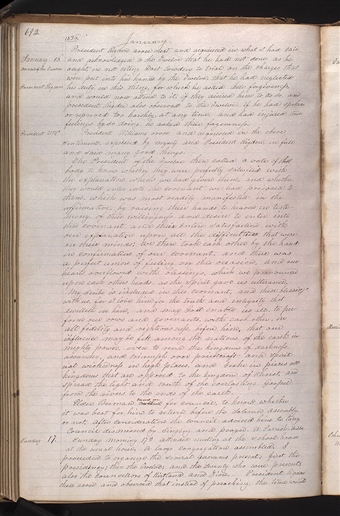 192
1836
January
President Rigdon arose next and acquiesced in what I had said
January 16
and acknowledged to the Twelve that he had not done as he
ought, in not citing Doct. to trial on the charges that
were put into his hands by the Twelve, that he had neglected
his duty in this thing, for which he asked their forgiveness,
and would now attend to it if they desired him to do so. and
President Rigdon also observed to the Twelve, if he had spoken
or reproved too harshly, at any time, and had injured their
feelings by so doing he asked their forgiveness.
President Williams arose and acquiesced in the above
sentiments expressed by myself and President Rigdon, in full
and said many good things
The President of the Twelve then called a vote of that
body to know whether they were perfectly satisfied with
the explanation which we had given them and whether
they would enter into the covenant we had proposed to
them, which was most readily manifested in the
affirmative, by raising their hands to heaven in testi
mony of their willingness and desire to enter into
this covenant and their entire satisfaction with
our explanation, upon all the difficulties that were
on their minds, we then took each other by the hand
in confirmation of our covenant, and there was
a perfect unison of feeling on this occasion, and our
hearts overflowed with blessings, which we pronounced
upon each other heads as the Spirit gave us utterance
My is included in this covenant, and these blessings
with us, for I love him, for the truth and integrity that
in him, and may God enable us all, to per
form our vows and covenants with each other in
all fidelity and righteousness before Him, that our
influence may be felt among the nations of the earth in
mighty power, even to rend the kingdoms of darkness
, and triumph over priestcraft and spirit
ual wickedness in high places, and break in pieces all
kingdoms that are opposed to the kingdom of Christ, and
spread the light and truth of the everlasting gospel
from the rivers to the ends of the earth.
Elder for counsel, to know whether
it was best for him to return before the Solemn Assembly
or not, after consideration the council advised him to tarry
Council dismissed by singing and prayer.
Sunday 17
Sunday morning 17th attended meeting at the school house
at the usual hour, a large congregation assembled. I
proceeded to organize the several quorums present; first, the
presidency; then the Twelve, and the seventy who were present,
also the counsellors of Kirtland and Zion. President Rigdon
then arose and observed that instead of preaching the time would